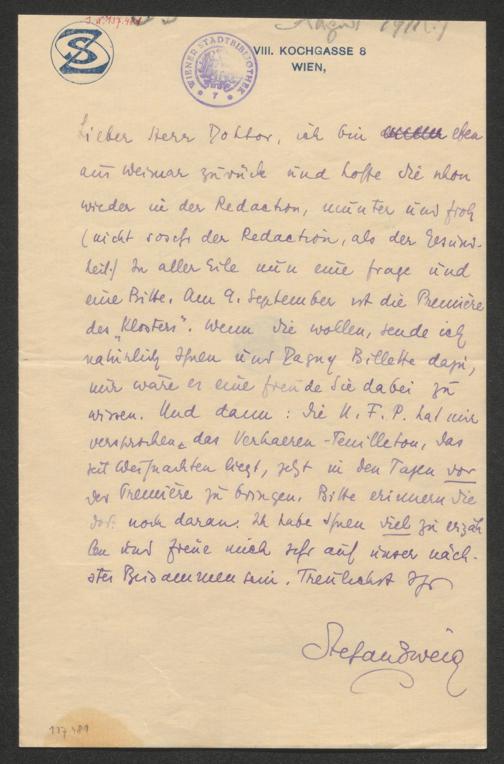 J. N. 137.481
August 1911.
SZ
WIENER STADTBIBLIOTHEK
* 7 *
VIII. KOCHGASSE 8
WIEN,
Lieber Herr Doktor, ich bin eben
aus Weimar zurück und hoffe Sie schon
wieder in der Redaction, munter und froh
(nicht wegen der Redaction, als der Gesund-
heit!) In aller Eile nun eine Frage und
eine Bitte. Am 9. September ist die Première
des "Klosters". Wenn Sie wollen, sende ich
natürlich Ihnen und Zagny Billette dazu,
mir wäre es eine Freude Sie dabei zu
wissen. Und dann: die N. F. P. hat mir
versprochen, das Verhaeren-Feuilleton, das
seit Weihnachten liegt, jetzt in den Tagen vor
der Première zu bringen. Bitte erinnern Sie
dort noch daran. Ich habe Ihnen viel zu erzäh
len und freue mich sehr auf unser näch-
stes Beisammensein. Treulichst Ihr
Stefan Zweig
137.481